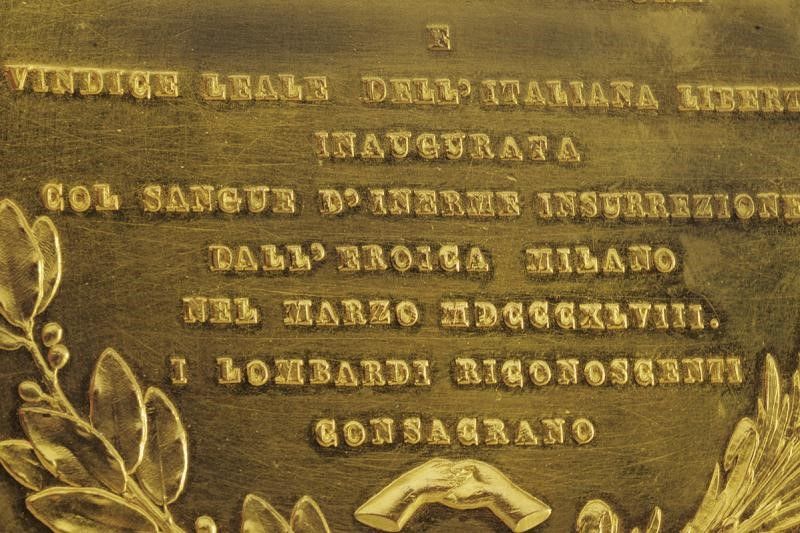 E
VINDICE LEALE DELL' ITALIANA LIBERT
INAUGURATA
COL SANGUE D' INERME INSURREZIONE
DALL' EROICA MILANO
NEL MARZO MDCCCXLVIII.
I LOMBARDI RICONOSCENTI
CONSACRANO